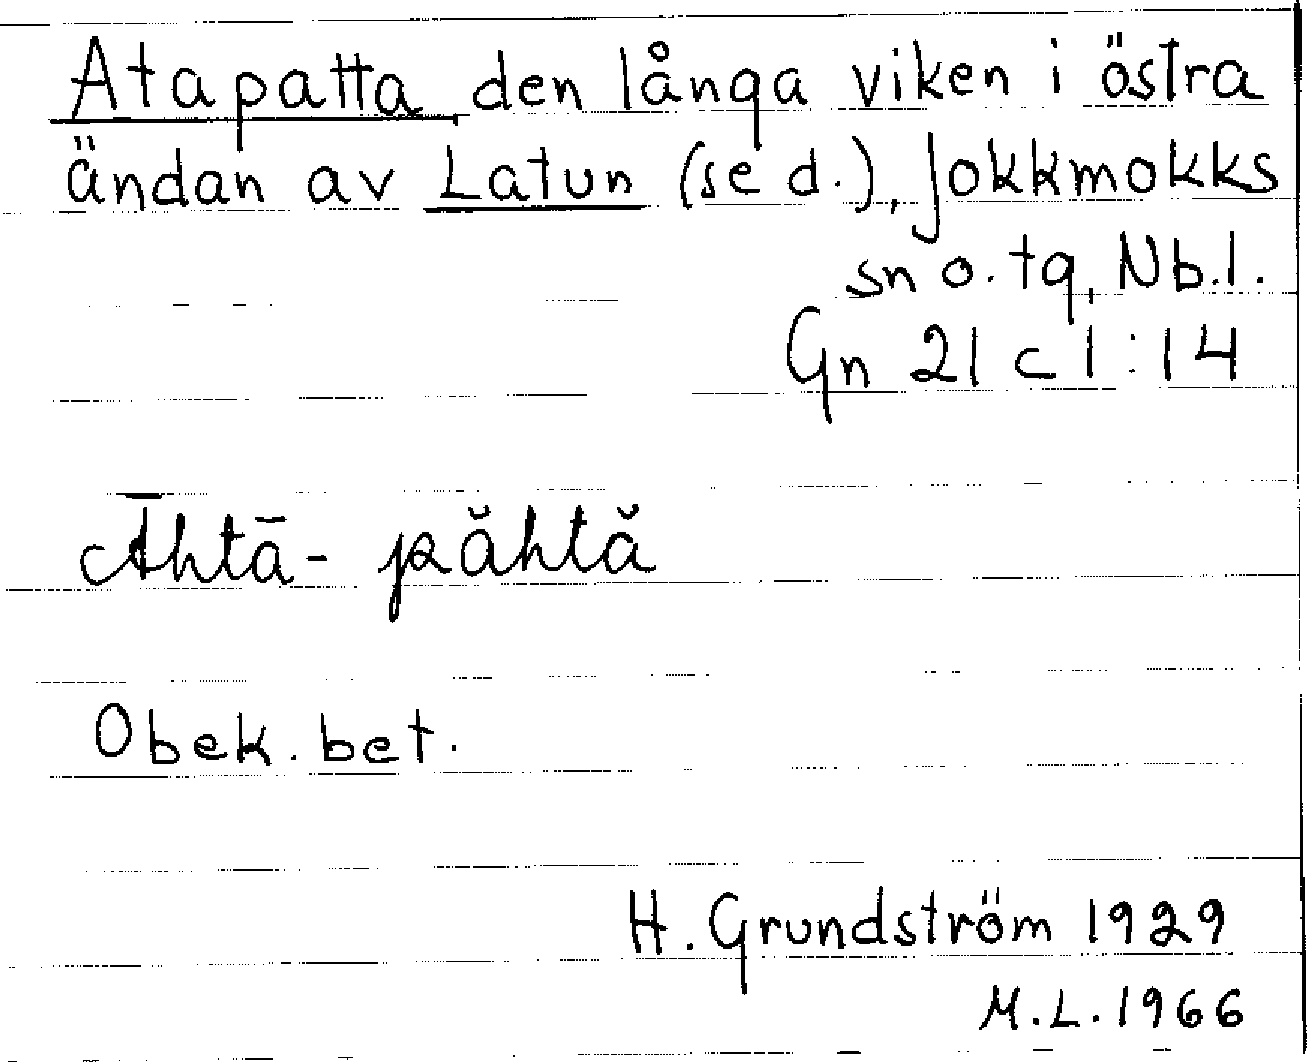 Atapatta den långa viken i östra
ändan av Latun (se d.), Jokkmokks
sn o. tg, Nb.l.
Gn 21 c 1:14
Āhtā- păhtă
Obek. bet.
H. Grundström 1929
M.L. 1966